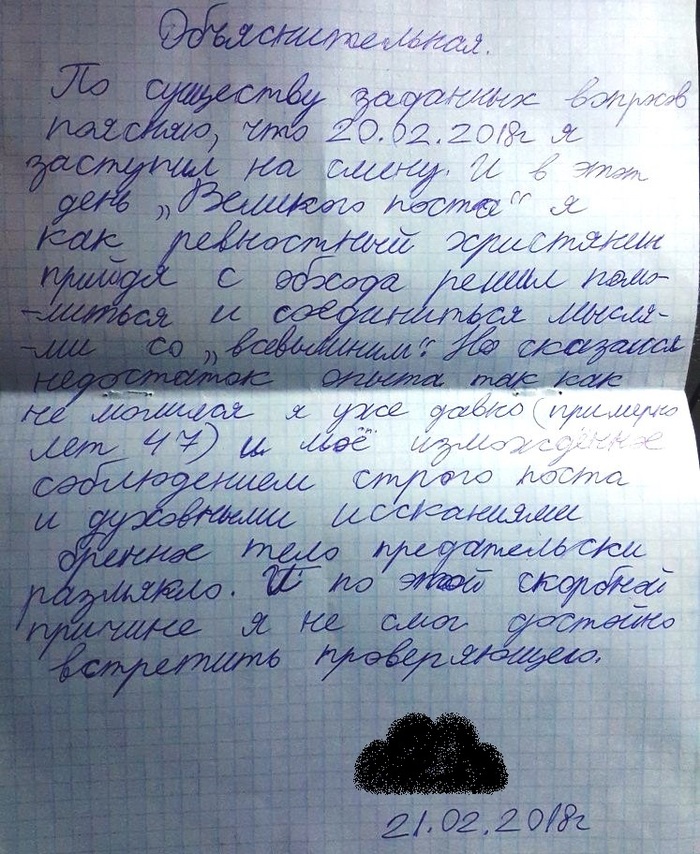 Объяснительная.
По существу заданных вопрсов
поясняю, что 20.02.2018г я
заступил на смену. И в этот
день „Великого поста“ я
как ревностный христянин
прийдя с обхода решил помо-
-литься и соединиться мысля-
-ми со „всевышним“. Но сказался
недостаток опыта так как
не молился я уже давно (примерно
лет 47) и моё измождённое
соблюдением строго поста
и духовными иссканиями
бренное тело предательски
размякло. И по этой скорбной
причине я не смог достойно
встретить проверяющего.
21.02.2018г